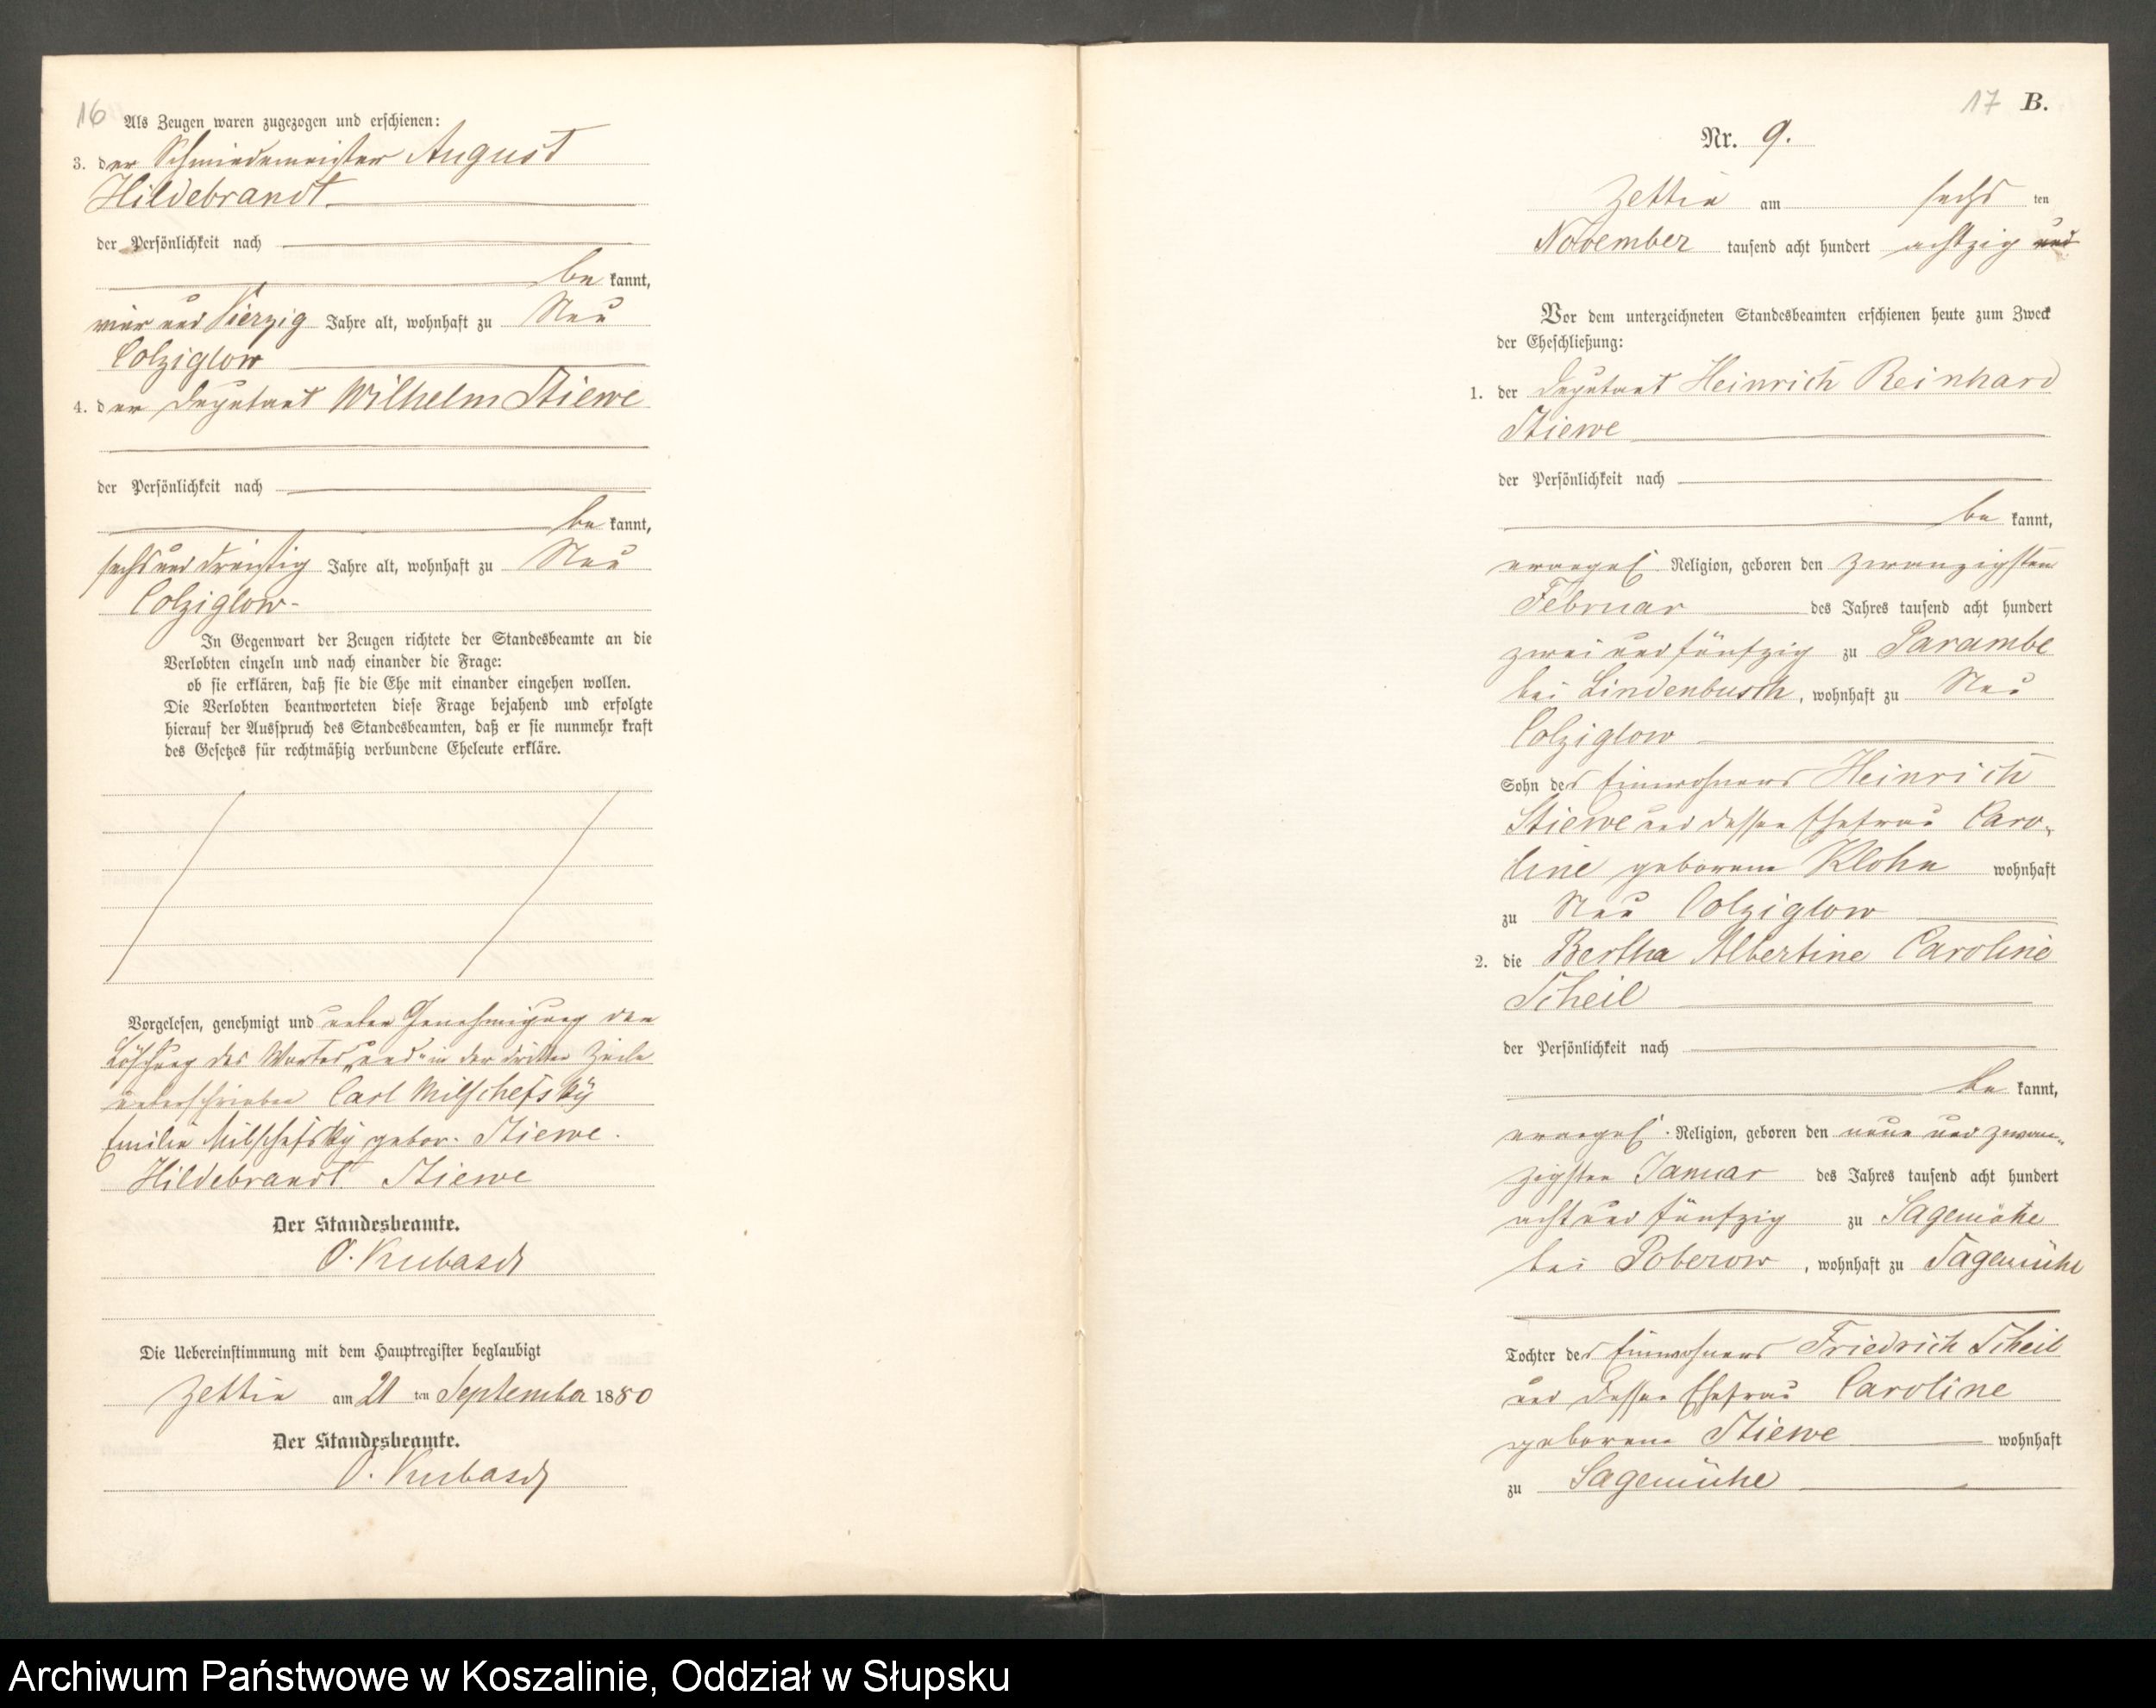 16
Als Zeugen waren zugezogen und erschienen:
3. der Schmiedemeister August
Hildebrandt
der Persönlichkeit nach
be kannt,
vier und vierzig Jahre alt, wohnhaft zu Neu
Colziglow
4. der Deputant Wilhelm Stiewe
der Persönlichkeit nach
be kannt,
sechs und dreißig Jahre alt, wohnhaft zu Neu
Colziglow-
In Gegenwart der Zeugen richtete der Standesbeamte an die
Verlobten einzeln und nach einander die Frage:
ob sie erklären, daß sie die Ehe mit einander eingehen wollen.
Die Verlobten beantworteten diese Frage bejahend und erfolgte
hierauf der Ausspruch des Standesbeamten, daß er sie nunmehr kraft
des Gesetzes für rechtmäßig verbundene Eheleute erkläre.
Vorgelesen, genehmigt und unter Genehmigung der
Löschung des Wortes „und" in der dritten Zeile
unterschrieben Carl Milschefsky
Emilie Milschefsky gebor. Stiewe.
Hildebrandt. Stiewe
Der Standesbeamte.
O. Kubasch
Die Uebereinstimmung mit dem Hauptregister beglaubigt
Zettin am 21 ten September 1880
Der Standesbeamte.
O. Kubasch
17 B.
Nr. 9.
Zettin am sechs ten
November tausend acht hundert achtzig und
Vor dem unterzeichneten Standesbeamten erschienen heute zum Zweck
der Eheschließung:
1. der Deputant Heinrich Reinhard
Stiewe
der Persönlichkeit nach
be kannt,
evangel. Religion, geboren den zwanzigsten
Februar des Jahres tausend acht hundert
zwei und fünfzig zu Darambe
bei Lindenbusch, wohnhaft zu Neu
Colziglow
Sohn des Einwohners Heinrich
Stiewe und dessen Ehefrau Caro-
line geborene Klohn wohnhaft
zu Neu Colziglow
2. die Bertha Albertine Caroline
Scheil
der Persönlichkeit nach
be kannt,
evangel. Religion, geboren den neun und zwan-
zigsten Januar des Jahres tausend acht hundert
acht und fünfzig zu
bei Poberow, wohnhaft zu Sagemühe
Tochter des Einwohners Friedrich Scheil
und dessen Ehefrau Caroline
geborene Stiewe wohnhaft
zu Sagemühe
Archiwum Państwowe w Koszalinie, Oddział w Słupsku